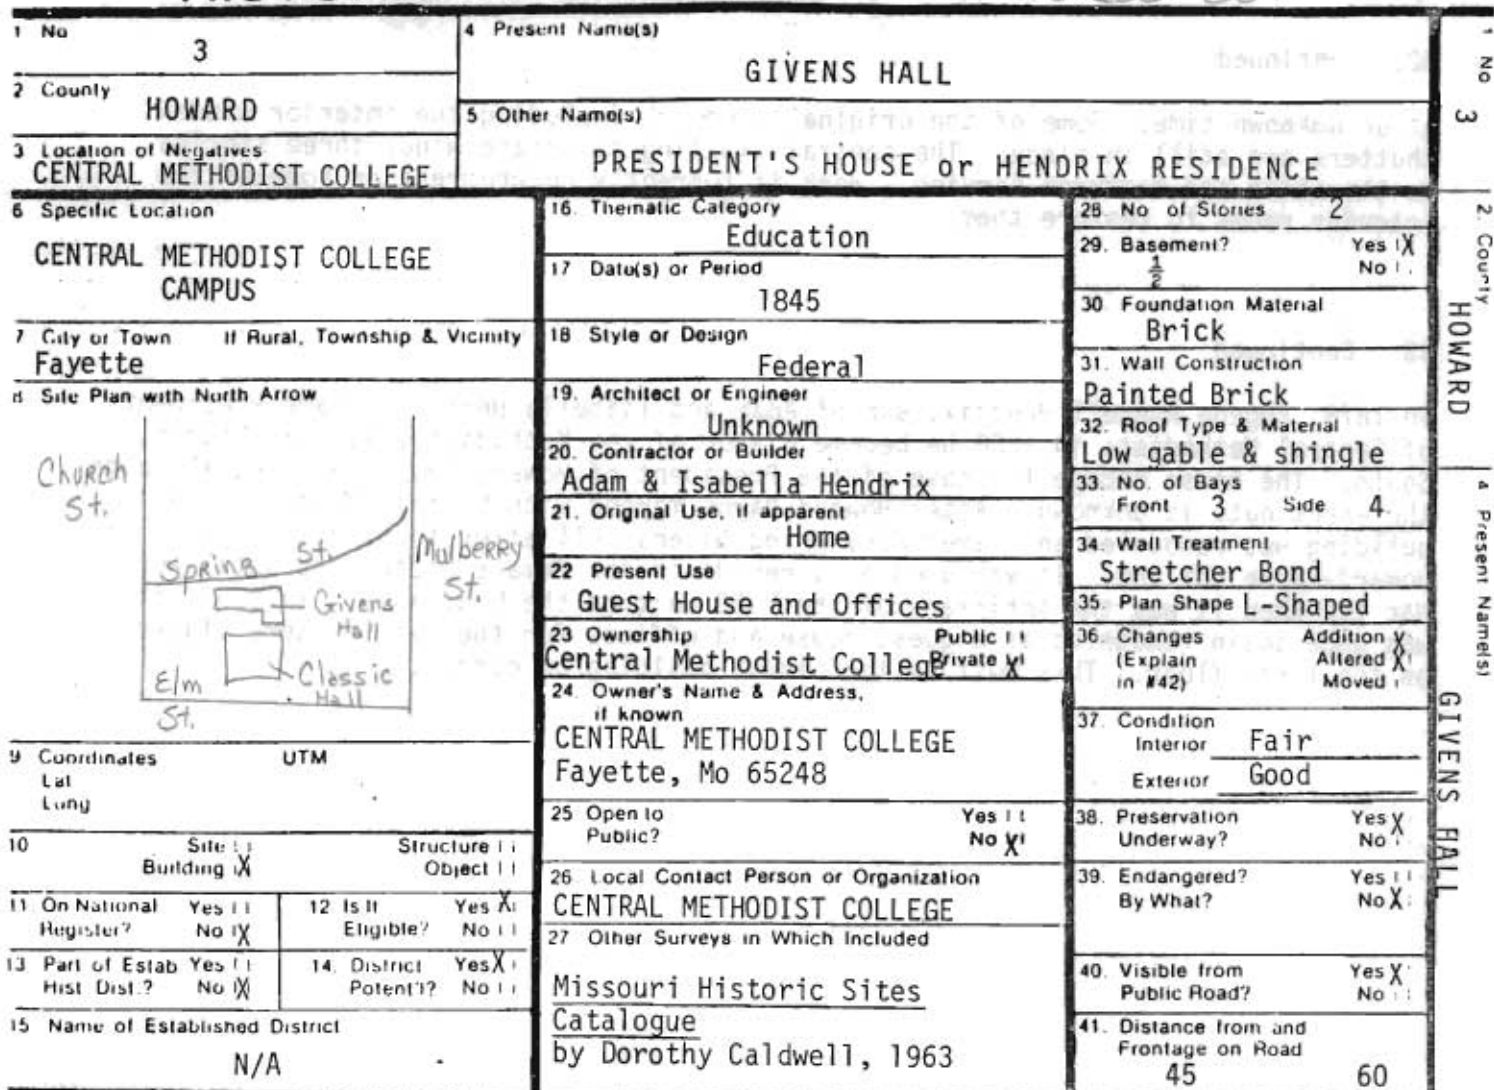 1 No
3
2 County
HOWARD
3 Location of Negatives
CENTRAL METHODIST COLLEGE
4 Present Name(s)
GIVENS HALL
5 Other Name(s)
PRESIDENT'S HOUSE or HENDRIX RESIDENCE
6 Specific Location
CENTRAL METHODIST COLLEGE
CAMPUS
7 City or Town If Rural, Township & Vicinity
Fayette
8 Site Plan with North Arrow
Church
St.
Spring St.
Mulberry
St.
Givens
Hall
Classic
Hall
Elm
St.
9 Coordinates UTM
Lat
Long
10 Site Structure
Building X Object
11 On National Yes
Register? No X
12 Is It Yes X
Eligible? No
13 Part of Estab Yes
Hist Dist.? No X
14. District Yes X
Potent'l? No
15 Name of Established District
N/A
16. Thematic Category
Education
17 Date(s) or Period
1845
18 Style or Design
Federal
19. Architect or Engineer
Unknown
20. Contractor or Builder
Adam & Isabella Hendrix
21. Original Use, if apparent
Home
22 Present Use
Guest House and Offices
23 Ownership Public
Central Methodist College Private X
24. Owner's Name & Address,
if known
CENTRAL METHODIST COLLEGE
Fayette, Mo 65248
25 Open to Yes
Public? No X
26 Local Contact Person or Organization
CENTRAL METHODIST COLLEGE
27 Other Surveys in Which Included
Missouri Historic Sites
Catalogue
by Dorothy Caldwell, 1963
28 No of Stories 2
29. Basement? Yes X
½ No
30 Foundation Material
Brick
31. Wall Construction
Painted Brick
32. Roof Type & Material
Low gable & shingle
33 No. of Bays
Front 3 Side 4
34 Wall Treatment
Stretcher Bond
35 Plan Shape L-Shaped
36 Changes Addition X
(Explain Altered X
in #42) Moved
37. Condition
Interior Fair
Exterior Good
38. Preservation Yes X
Underway? No
39. Endangered? Yes
By What? No X
40. Visible from Yes X
Public Road? No
41. Distance from and
Frontage on Road
45 60
1 No
3
2. County
HOWARD
4 Present Name(s)
GIVENS HALL